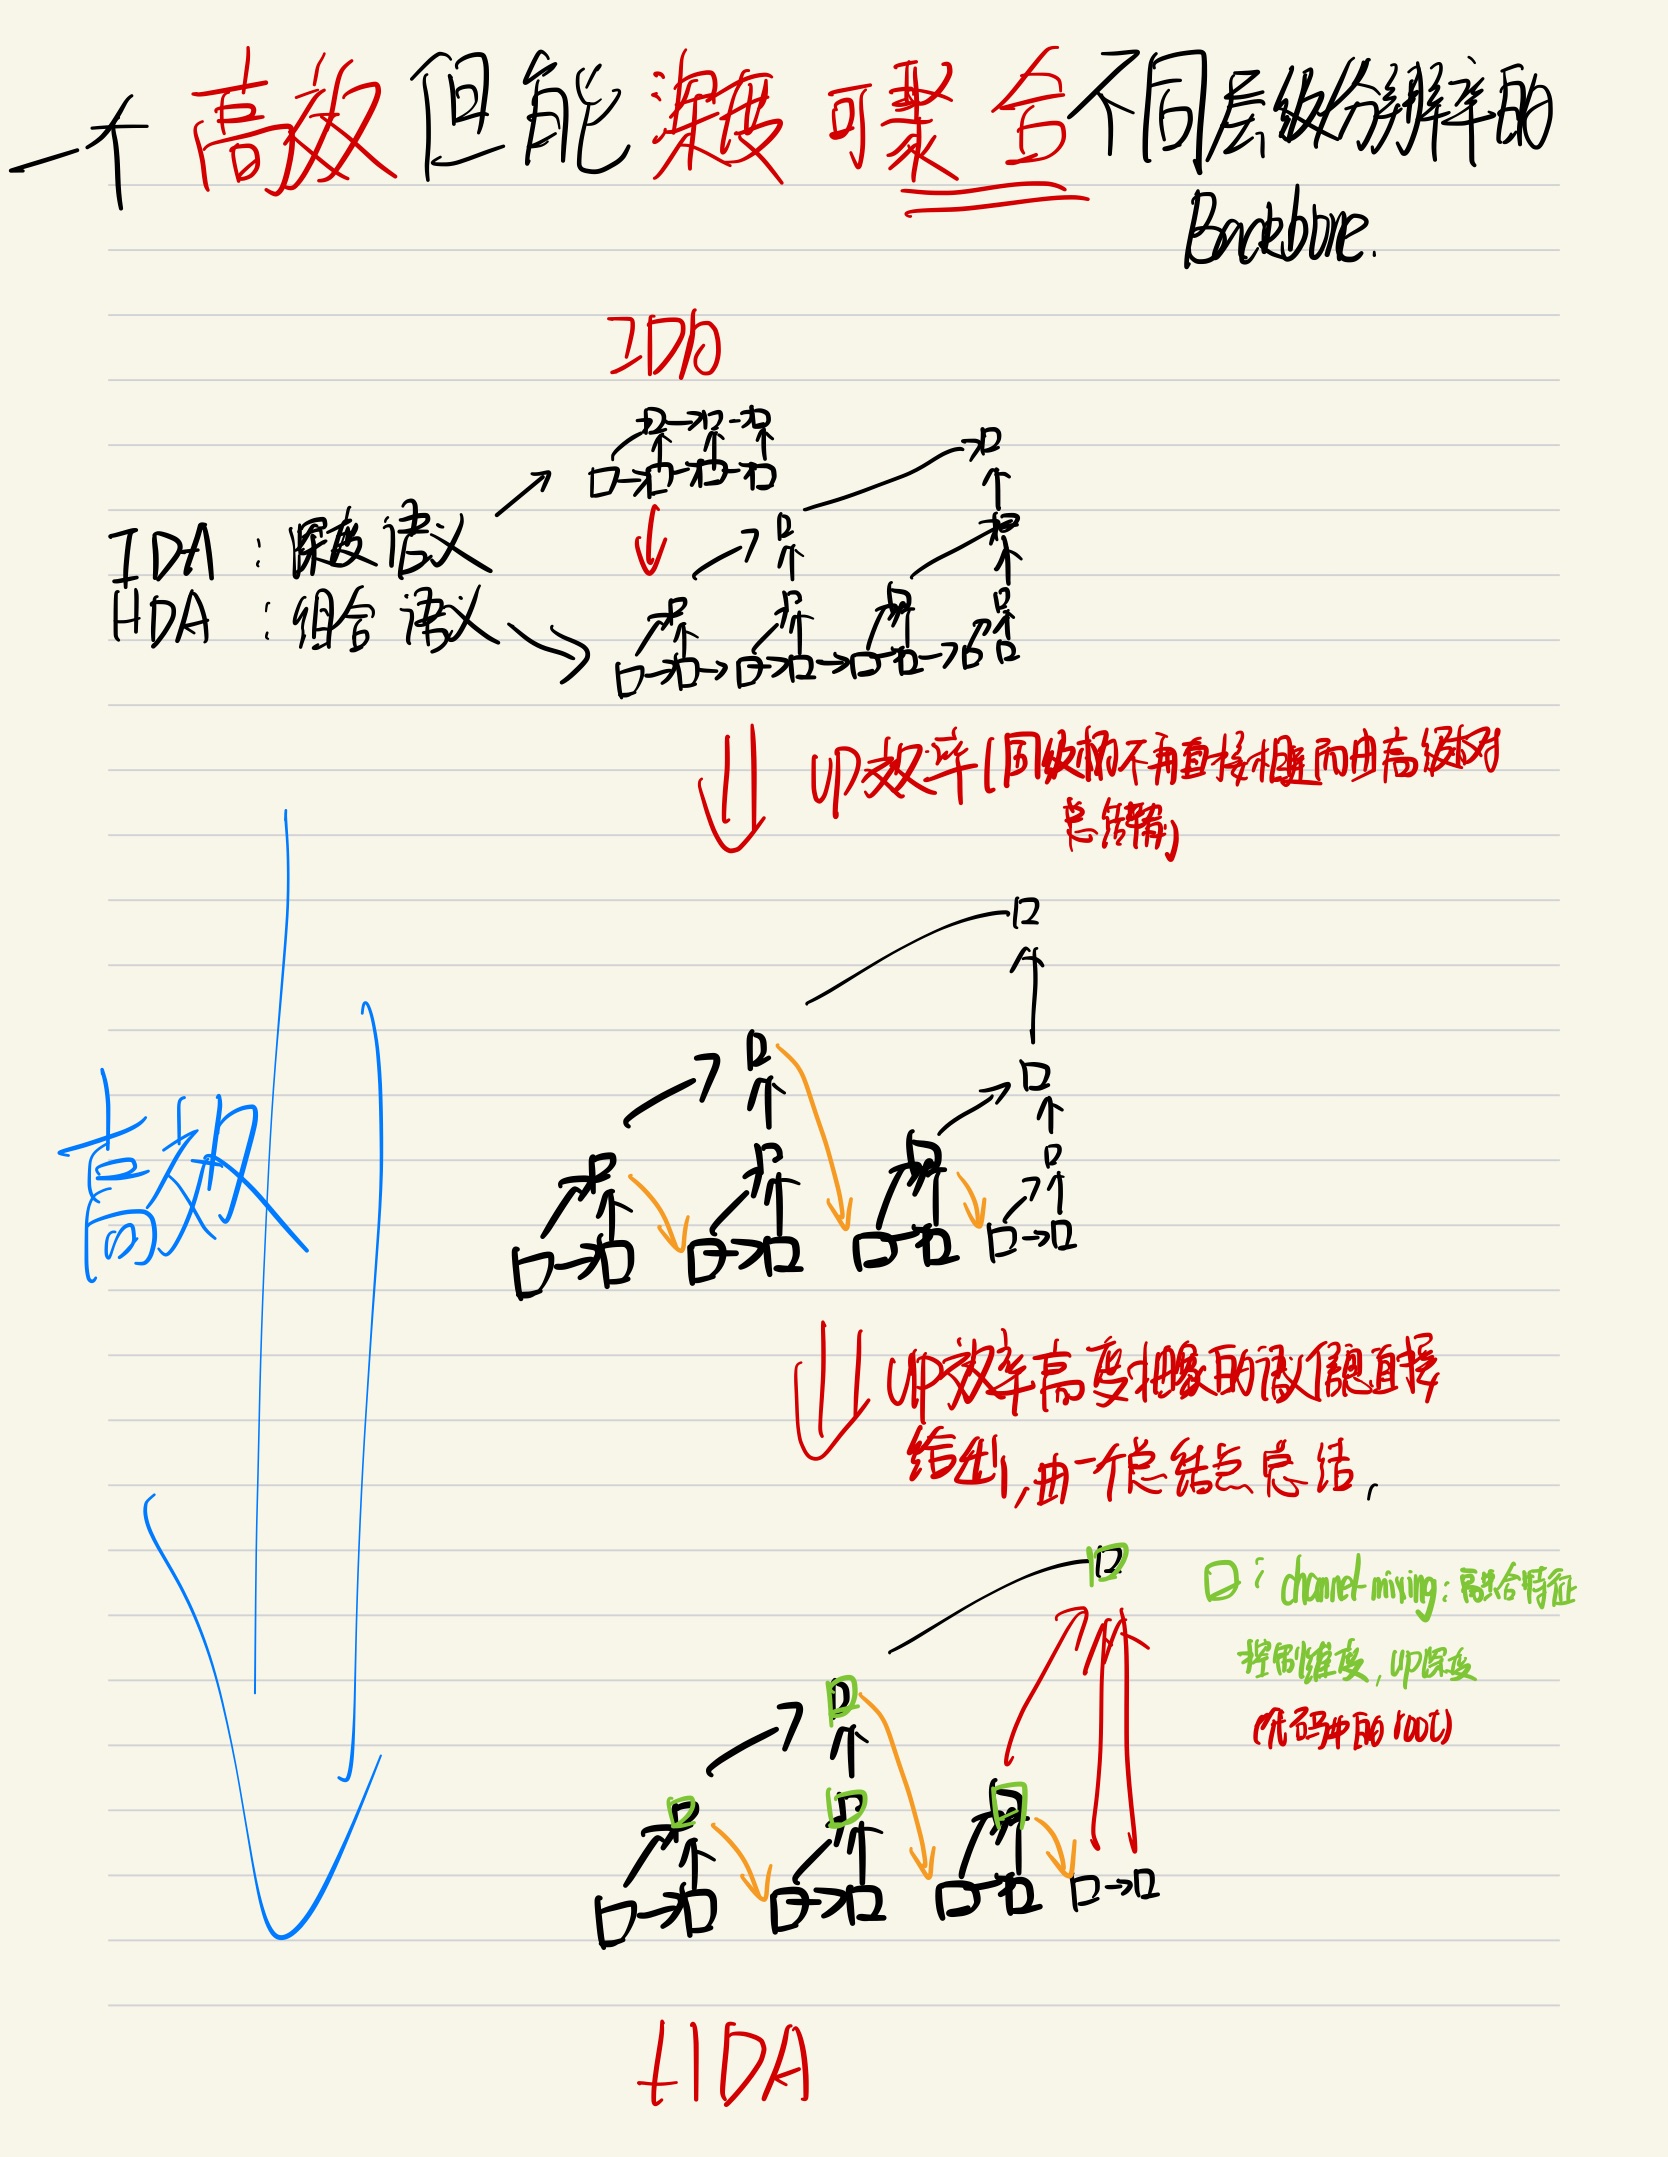 一个高效但能深度可聚合不同层级分辨率的
Backbone.
IDA
IDA：深度语义
HDA：组合语义
UP效率(同级树不再直接相连而由高级树
总结再
高效
UP效率高度抽象的语义信息直接
给出,由一个总结点总结,
口：channel mixing：高融合特征
控制维度,UP深度
(代码中的root)
HDA